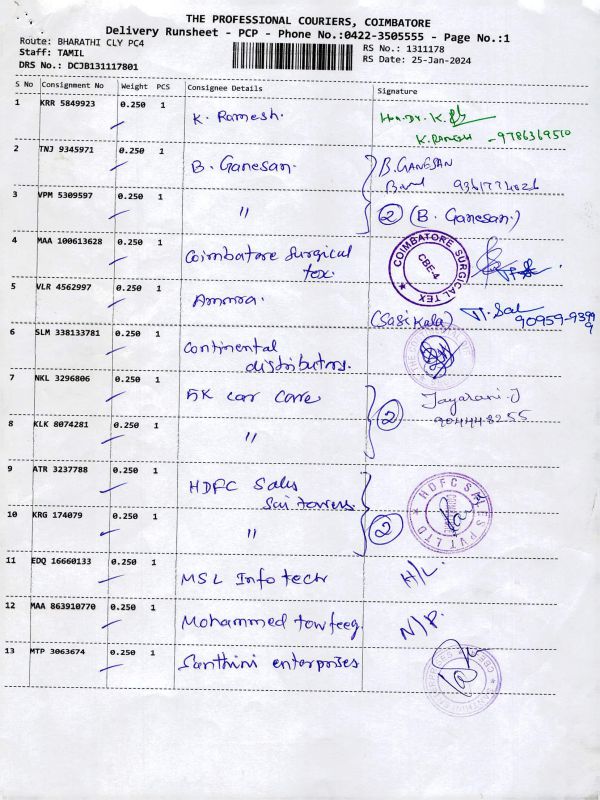 THE PROFESSIONAL COURIERS, COIMBATORE
Delivery Runsheet - PCP - Phone No.:0422-3505555 - Page No.:1
Route: BHARATHI CLY PC4
RS No.: 1311178
Staff: TAMIL
RS Date: 25-Jan-2024
DRS No.: DCJB131117801
S No Consignment No Weight PCS Consignee Details Signature
1 KRR 5849923 0.250 1 K. Ramesh.
K. RAMESH - 9786369510
2 TNJ 9345971 0.250 1 B. Ganesan. B. GANGSAN
3 VPM 5309597 0.250 1 " 2 (B. Ganesan.)
4 MAA 100613628 0.250 1 Coimbatore Surgical tex. COIMBATORE SURGICAL TEX CBE-4
5 VLR 4562997 0.250 1 Amma. (Sasikala)
90959-9399
6 SLM 338133781 0.250 1 Continental distributors.
7 NKL 3296806 0.250 1 5K car care Jayarani.J
8 KLK 8074281 0.250 1 " 2 90444 8255
9 ATR 3237788 0.250 1 HDFC Sales Sai towers HDFC SALES PVT LTD
10 KRG 174079 0.250 1 " 2
11 EDQ 16660133 0.250 1 MSL Infotech H/L.
12 MAA 863910770 0.250 1 Mohammed towfeeq. N/P.
13 MTP 3063674 0.250 1 Santhini enterprises